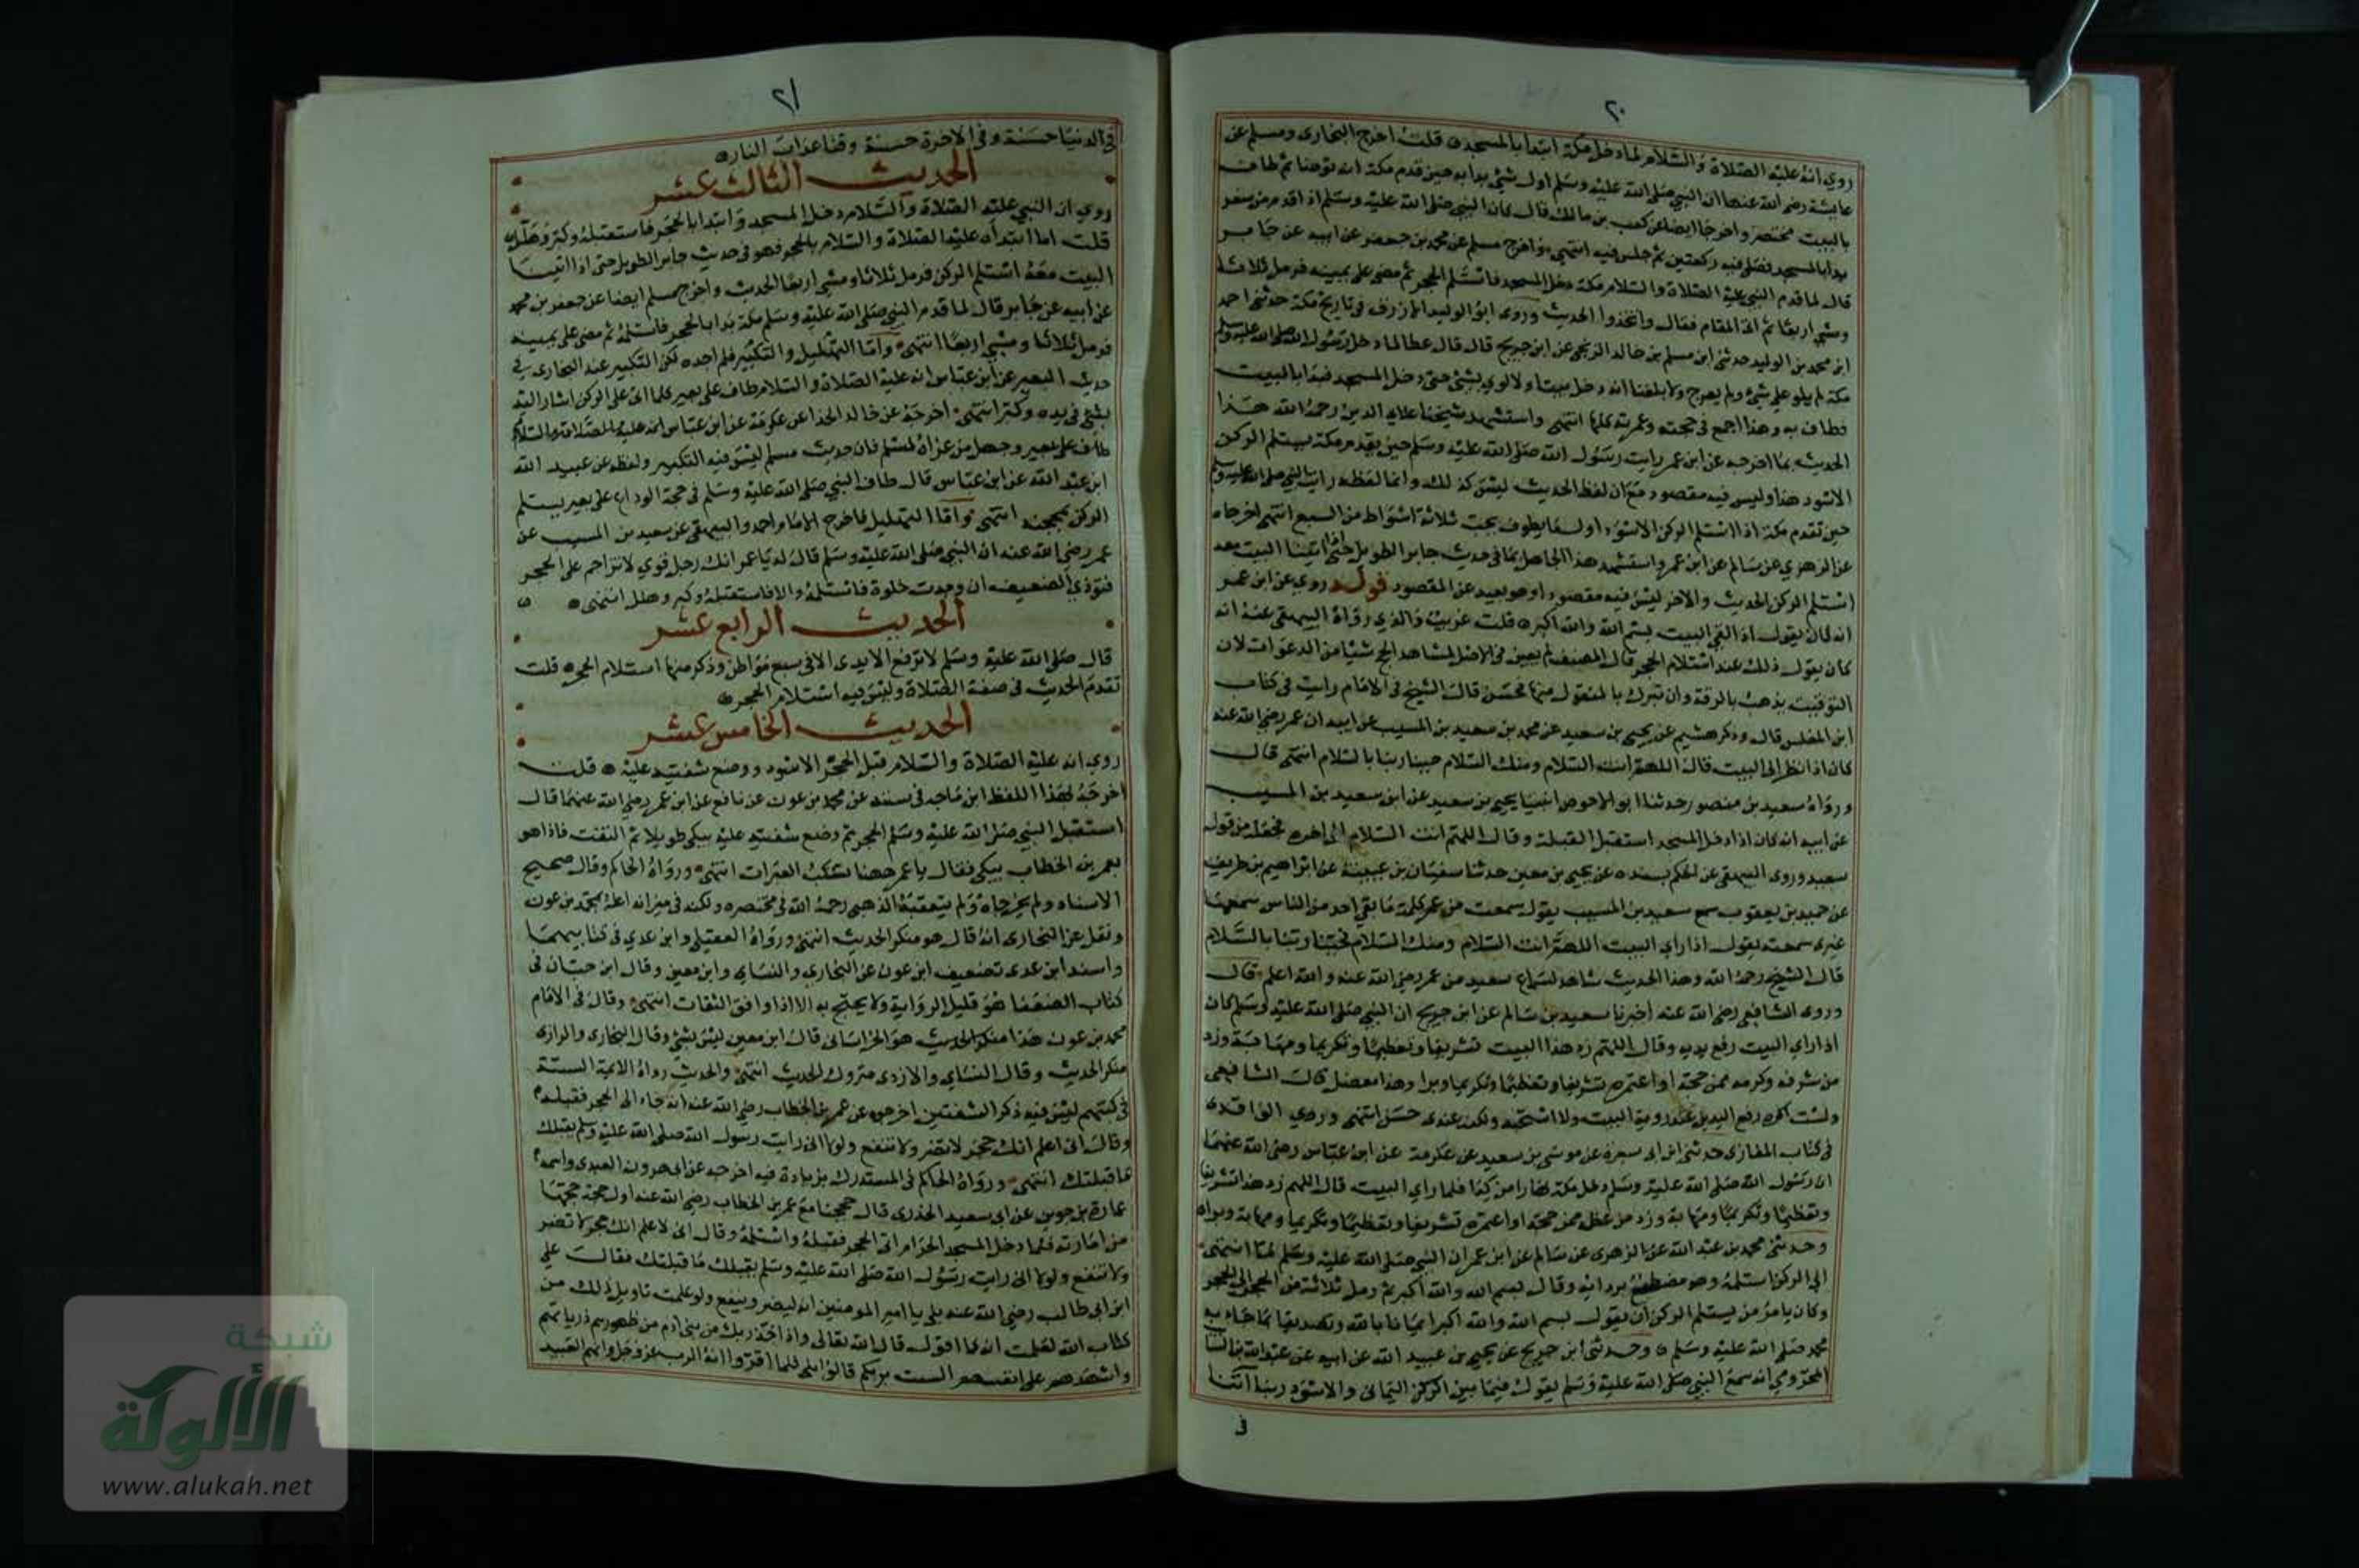 ٢٠
روي انه عليه الصلاة والسلام لما دخل مكة ابتدا بالمسجد قلت اخرج البخاري ومسلم عن
عايشة رضي الله عنها ان النبي صلى الله عليه وسلم اول شي بدا به حين قدم مكة ان توضا ثم طاف
بالبيت مختصر واخرجا ايضا عن كعب بن مالك قال كان النبي صلى الله عليه وسلم اذا قدم من سفر
بدا بالمسجد فصلى فيه ركعتين ثم جلس فيه انتهى واخرج مسلم عن محمد بن جعفر عن ابيه عن جابر
قال لما قدم النبي عليه الصلاة والسلام مكة دخل المسجد فاستلم الحجر ثم مضى على يمينه فرمل ثلاثا
ومشى اربعا ثم اتى المقام فقال واتخذوا الحديث وروى ابو الوليد الازرقي في تاريخ مكة حدثني احمد
ابن محمد بن الوليد حدثني ابن مسلم بن خالد الزنجي عن ابن جريج قال قال عطا لما دخل رسول الله صلى الله عليه وسلم
مكة لم يلو على شيء ولم يعرج ولا بلغنا انه دخل بيتا ولا لوي بشي حتى دخل المسجد فبدا بالبيت
فطاف به وهذا اجمع في حجته وعمرته كلها انتهى واستشهد شيخنا علاي الدين رحمه الله هذا
الحديث بما اخرجه عن ابن عمر رايت رسول الله صلى الله عليه وسلم حين يقدم مكة يستلم الركن
الاسود هذا وليس فيه مقصود مع ان لفظ الحديث ليس كذلك وانما لفظه رايت النبي صلى الله عليه وسلم
حين تقدم مكة اذا استلم الركن الاسود اول ما يطوف يخب ثلاثة اشواط من السبع انتهى اخرجاه
عن الزهري عن سالم عن ابن عمر واستشهد هذا الجاهل بما في حديث جابر الطويل حتى اتينا البيت معه
استلم الركن الحديث والاخر ليس فيه مقصود او هو بعيد عن المقصود قوله روي عن ابن عمر
انه كان يقول اذا لقي البيت بسم الله والله اكبر قلت غريب والذي رواه البيهقي عنه انه
كان يقول ذلك عند استلام الحجر قال المصنف لم يعين في الاصل لمشاهد الحج شيا من الدعوات لان
التوقيت يذهب بالرقة وان تبرك بالمنقول منها فحسن قال الشيخ في الامام رايت في كتاب
ابن المغلس قال وذكر هشيم عن يحيى بن سعيد عن محمد بن سعيد بن المسيب عن ابيه ان عمر رضي الله عنه
كان اذا نظر الى البيت قال اللهم انت السلام ومنك السلام حينا ربنا بالسلام انتهى قال
ورواه سعيد بن منصور حدثنا ابو الاحوص انبيا يحيى بن سعيد عن ابن سعيد بن المسيب
عن ابيه انه كان اذا دخل المسجد استقبل القبلة وقال اللهم انت السلام الى اخره فجعله من قول
سعيد وروى البيهقي عن الحكم بسنده عن يحيى بن معين حدثنا سفيان بن عيينة عن ابراهيم بن طريف
عن حميد بن يعقوب سمع سعيد بن المسيب يقول سمعت من عمر كلمة ما بقي احد من الناس سمعها
غيري سمعته يقول اذا راي البيت اللهم انت السلام ومنك السلام فحينا ربنا بالسلام
قال الشيخ رحمه الله وهذا الحديث شاهد لسماع سعيد من عمر رضي الله عنه والله اعلم قال
وروى الشافعي رضي الله عنه اخبرنا سعيد بن سالم عن ابن جريج ان النبي صلى الله عليه وسلم كان
اذا راي البيت رفع يديه وقال اللهم زد هذا البيت تشريفا وتعظيما وتكريما ومهابة وزد
من شرفه وكرمه ممن حجه او اعتمره تشريفا وتعظيما وتكريما وبرا وهذا معضل قال الشافعي
ولست اكره رفع اليدين عند روية البيت ولا استحبه ولكن عندي حسن انتهى وروي الواقدي
في كتاب المغازي حدثني ابن ابي سبرة عن موسى بن سعيد عن عكرمة عن ابن عباس رضي الله عنهما
ان رسول الله صلى الله عليه وسلم دخل مكة نهارا من كدا فلما راي البيت قال اللهم زد هذا تشريفا
وتعظيما وتكريما ومهابة وزد من عظمه ممن حجه او اعتمره تشريفا وتعظيما وتكريما ومهابة وبراه
وحدثني محمد بن عبد الله عن الزهري عن سالم عن ابن عمر ان النبي صلى الله عليه وسلم لما انتهى
الى الركن استلمه وهو مضطبع بردايه وقال بسم الله والله اكبر ثم رمل ثلاثة من الحجر الى الحجر
وكان يامر من يستلم الركن ان يقول بسم الله والله اكبر ايمانا بالله وتصديقا بما جاء به
محمد صلى الله عليه وسلم وحدثني ابن جريج عن يحيى بن عبيد الله عن ابيه عن عبد الله بن السا
المخزومي انه سمع النبي صلى الله عليه وسلم يقول فيما بين الركن اليماني والاسود ربنا اتنا
في
٢١
في الدنيا حسنة وفي الاخرة حسنة وقنا عذاب النار
الحديث الثالث عشر
روي ان النبي عليه الصلاة والسلام دخل المسجد وابتدا بالحجر فاستقبله وكبر وهلل
قلت اما ابتداه عليه الصلاة والسلام بالحجر فهو في حديث جابر الطويل حتى اذا اتينا
البيت معه استلم الركن فرمل ثلاثا ومشى اربعا الحديث واخرج مسلم ايضا عن جعفر بن محمد
عن ابيه عن جابر قال لما قدم النبي صلى الله عليه وسلم مكة بدا بالحجر فاستلمه ثم مضى على يمينه
فرمل ثلاثا ومشى اربعا انتهى واما التهليل والتكبير فلم اجده لكن التكبير عند البخاري في
حديث البعير عن ابن عباس انه عليه الصلاة والسلام طاف على بعير كلما اتى على الركن اشار اليه
بشي في يده وكبر انتهى اخرجه عن خالد الحذا عن عكرمة عن ابن عباس انه عليه الصلاة والسلام
طاف على بعير وجهل من عزاه لمسلم فان حديث مسلم ليس فيه التكبير ولفظه عن عبيد الله
ابن عبد الله عن ابن عباس قال طاف النبي صلى الله عليه وسلم في حجة الوداع على بعير يستلم
الركن بمحجنه انتهى واما التهليل فاخرج الامام احمد والبيهقي عن سعيد بن المسيب عن
عمر رضي الله عنه ان النبي صلى الله عليه وسلم قال له يا عمر انك رجل قوي لا تزاحم على الحجر
فتوذي الضعيف ان وجدت خلوة فاستلمه والا فاستقبله وكبر وهلل انتهى
الحديث الرابع عشر
قال صلى الله عليه وسلم لا ترفع الايدي الا في سبع مواطن وذكر منها استلام الحجر قلت
تقدم الحديث في صفة الصلاة وليس فيه استلام الحجر
الحديث الخامس عشر
روي انه عليه الصلاة والسلام قبل الحجر الاسود ووضع شفتيه عليه قلت
اخرجه بهذا اللفظ ابن ماجه في سننه عن محمد بن عون عن نافع عن ابن عمر رضي الله عنهما قال
استقبل النبي صلى الله عليه وسلم الحجر ثم وضع شفتيه عليه يبكي طويلا ثم التفت فاذا هو
بعمر بن الخطاب يبكي فقال يا عمر ههنا تسكب العبرات انتهى ورواه الحاكم وقال صحيح
الاسناد ولم يخرجاه ولم يتعقبه الذهبي رحمه الله في مختصره ولكنه في ميزانه اعله بمحمد بن عون
ونقل عن البخاري انه قال هو منكر الحديث انتهى ورواه العقيلي وابن عدي في كتابيهما
واسند ابن عدي تضعيف ابن عون عن البخاري والنساي وابن معين وقال ابن حبان في
كتاب الضعفا هو قليل الرواية ولا يحتج به الا اذا وافق الثقات انتهى وقال في الامام
محمد بن عون هذا منكر الحديث هو الخراساني قال ابن معين ليس بشي وقال البخاري والرازي
منكر الحديث وقال النساي والازدي متروك الحديث انتهى والحديث رواه الايمة الستة
في كتبهم ليس فيه ذكر الشفتين اخرجوه عن عمر بن الخطاب رضي الله عنه انه جاء الى الحجر فقبله
وقال اني اعلم انك حجر لا تضر ولا تنفع ولولا اني رايت رسول الله صلى الله عليه وسلم يقبلك
ما قبلتك انتهى ورواه الحاكم في المستدرك بزيادة فيه اخرجه عن ابي هرون العبدي واسمه
عمارة بن جوين عن ابي سعيد الخدري قال حججنا مع عمر بن الخطاب رضي الله عنه اول حجة حجها
من امارته فلما دخل المسجد الحرام اتى الحجر فقبله واستلمه وقال اني لاعلم انك حجر لا تضر
ولا تنفع ولولا اني رايت رسول الله صلى الله عليه وسلم يقبلك ما قبلتك فقال علي
ابن ابي طالب رضي الله عنه بلى يا امير المومنين انه ليضر وينفع ولو علمت تاويل ذلك من
كتاب الله لعلمت انه كما اقول قال الله تعالى واذ اخذ ربك من بني ادم من ظهورهم ذرياتهم
واشهدهم على انفسهم الست بربكم قالوا بلى فلما اقروا انه الرب عز وجل وانهم العبيد
شبكة
الألوكة
www.alukah.net